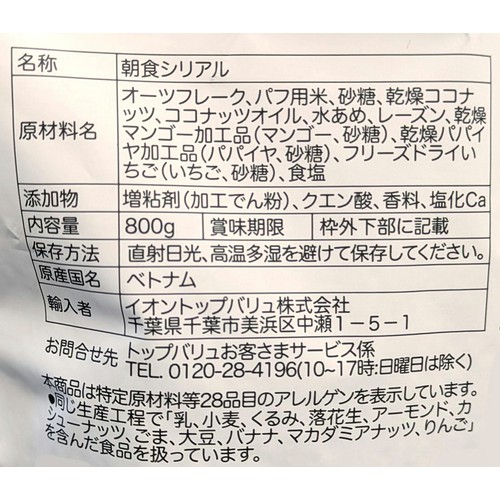 名称 朝食シリアル
原材料名 オーツフレーク、パフ用米、砂糖、乾燥ココナ
ッツ、ココナッツオイル、水あめ、レーズン、乾燥
マンゴー加工品(マンゴー、砂糖)、乾燥パパイ
ヤ加工品(パパイヤ、砂糖)、フリーズドライい
ちご(いちご、砂糖)、食塩
添加物 増粘剤(加工でん粉)、クエン酸、香料、塩化Ca
内容量 800g 賞味期限 枠外下部に記載
保存方法 直射日光、高温多湿を避けて保存してください。
原産国名 ベトナム
輸入者 イオントップバリュ株式会社
千葉県千葉市美浜区中瀬1-5-1
お問合せ先 トップバリュお客さまサービス係
TEL. 0120-28-4196(10~17時:日曜日は除く)
本商品は特定原材料等28品目のアレルゲンを表示しています。
●同じ生産工程で「乳、小麦、くるみ、落花生、アーモンド、カ
シューナッツ、ごま、大豆、バナナ、マカダミアナッツ、りんご」
を含んだ食品を扱っています。